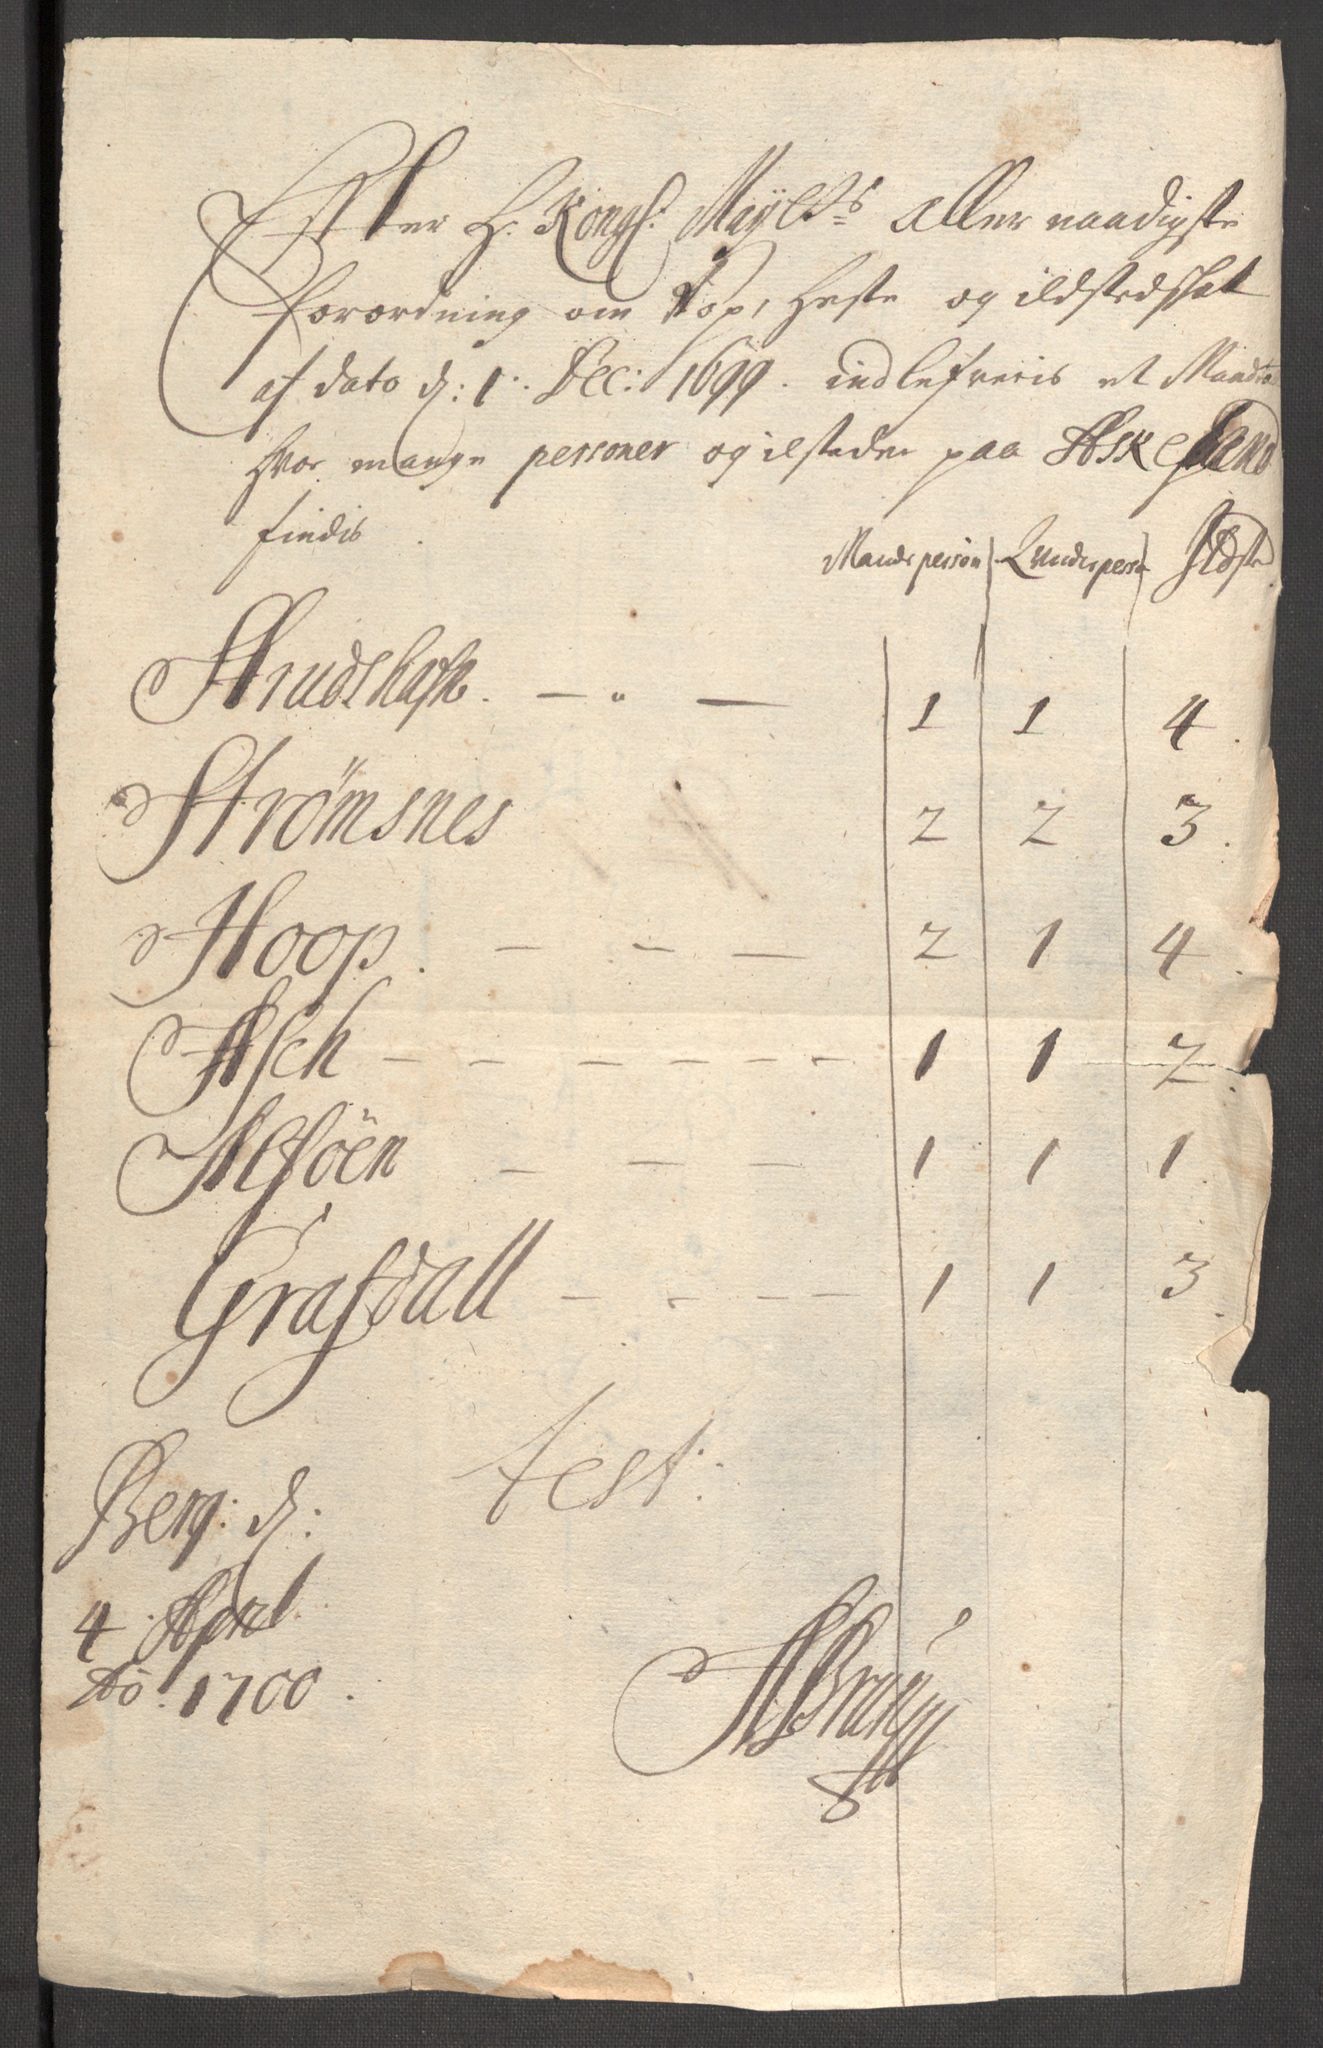 Efter H. Kongl. Mayets aller naadigste
forordning om Kop, heste og ildstedskat
af dato d: 1. Dec: 1699. indlefveris et Mandta
hvor mange personer og ilsteder paa Askeland
findis.
Mands person Qvindis perso Ildste
Strudshafn. 1 1 4.
Strømsnes 2 2 3.
Hoop. 2 1 4.
Ask 1 1 2.
1 1 1.
Grafdall 1 1 3.
test:
Berg: d:
4. April
Ao. 1700.